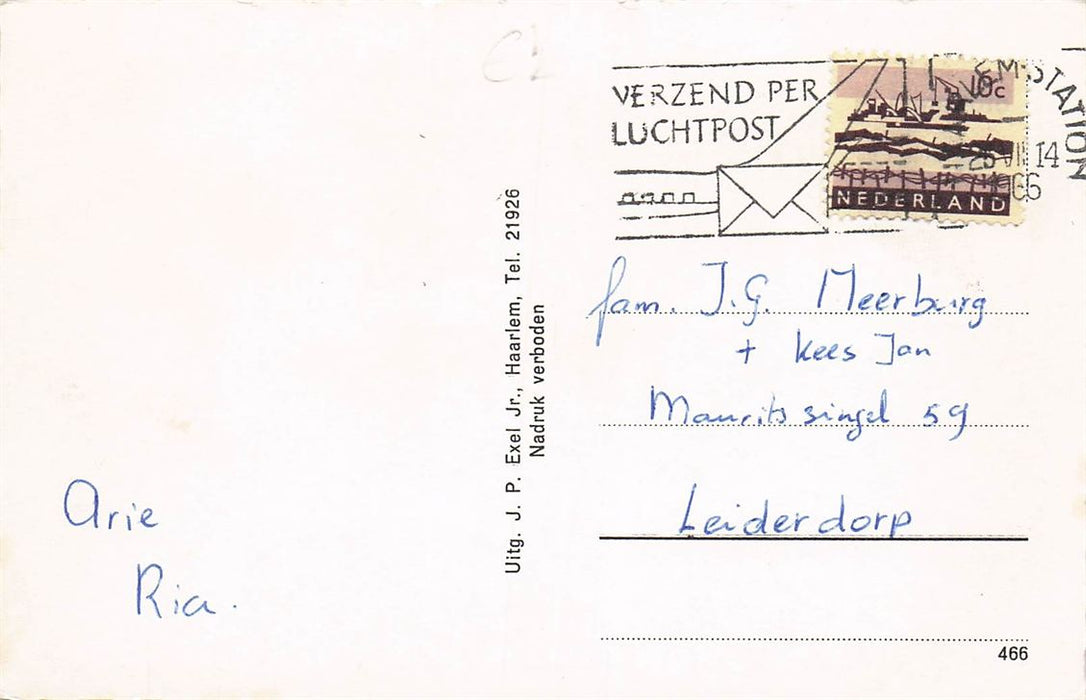 VERZEND PER
LUCHTPOST
10c
NEDERLAND
STATION
14
66
Uitg. J. P. Exel Jr., Haarlem, Tel. 21926
Nadruk verboden
fam. J.G. Meerburg
+ Kees Jan
Mauritssingel 59
Leiderdorp
Arie
Ria.
466